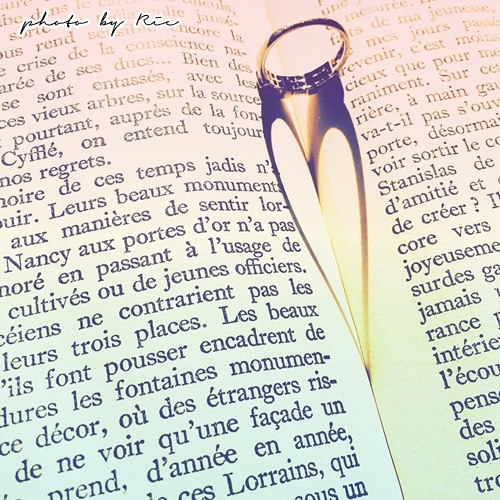 photo by Ric
vous rend
crise de la conscience na-
arée de ses ducs... Bien des
se sont entassés, avec les
ces vieux arbres, sur la source
pourtant, auprès de la fon-
Cyfflé, on entend toujours
nos regrets.
moire de ces temps jadis n'
ouir. Leurs beaux monuments
aux manières de sentir lor-
Nancy aux portes d'or n'a pas
noré en passant à l'usage de
cultivés ou de jeunes officiers.
céiens ne contrarient pas les
leurs trois places. Les beaux
'ils font pousser encadrent de
dures les fontaines monumen-
ce décor, où des étrangers ris-
de ne voir qu'une façade un
prend, d'année en année,
de ces Lorrains, qui
sous un
venir, c'est moins
cieux que pour
raniment. Sur cet
rière, à main ga
va-t-il pas s'ou
porte, désorma
voir sortir le co
Stanislas de
d'amitié et
de créer ? Il
core vers
joyeuseme
surdes ga
jamais
rance p
intérie
l'écou
pense
des
soli
tro